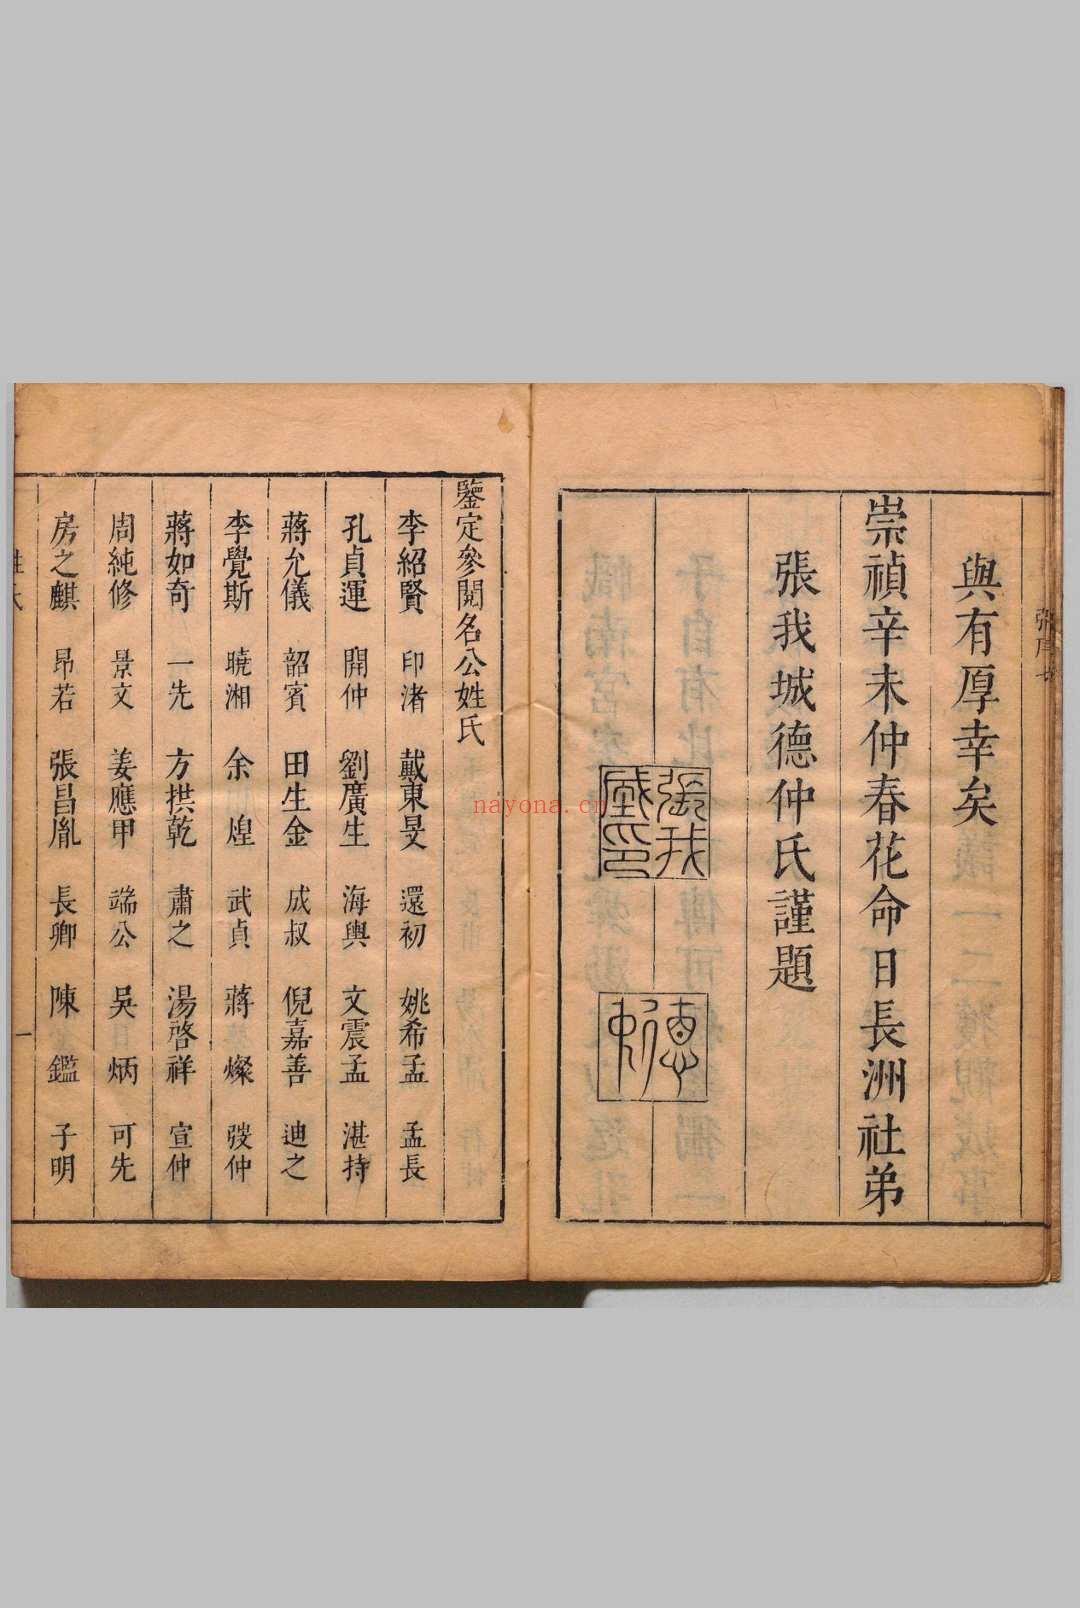 與有厚幸矣
崇禎辛未仲春花命日長洲社弟
張我城德仲氏謹題
張我城印
德仲
鑒定參閱名公姓氏
李紹賢 印渚 戴東旻 還初 姚希孟 孟長
孔貞運 開仲 劉廣生 海輿 文震孟 湛持
蔣允儀 韶賓 田生金 成叔 倪嘉善 迪之
李覺斯 曉湘 余煌 武貞 蔣燦 弢仲
蔣如奇 一先 方拱乾 肅之 湯啓祥 宣仲
周純修 景文 姜應甲 端公 吳炳 可先
房之麒 昂若 張昌胤 長卿 陳鑑 子明
姓氏
一
nayona.cn